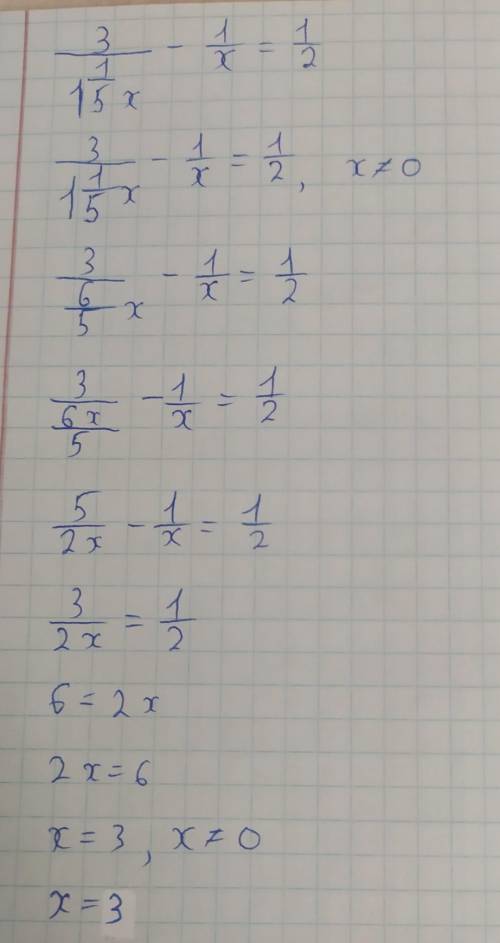 3/(1 1/5 x) - 1/x = 1/2
3/(1 1/5 x) - 1/x = 1/2, x ≠ 0
3/(6/5 x) - 1/x = 1/2
3/(6x/5) - 1/x = 1/2
5/2x - 1/x = 1/2
3/2x = 1/2
6 = 2x
2x = 6
x = 3, x ≠ 0
x = 3